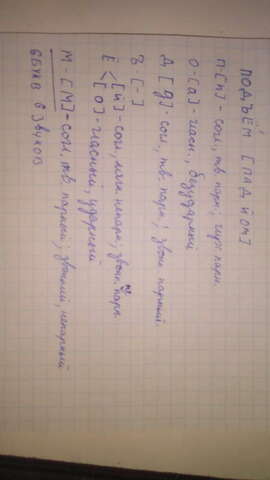 ПОДЪЁМ [ПАДЙОМ]
П-[п]-согл., тв. парн.; глух. парн.
О-[а]-гласн., безударный
Д-[д]-согл., тв. парн.; звон. парный.
Ъ-[-]
Ё<[й]-согл., мягк. непарн; звон. непарн.
[о]-гласный, ударный
М-[М]-согл., тв. парный; звонкий, непарный
6 букв 6 звуков